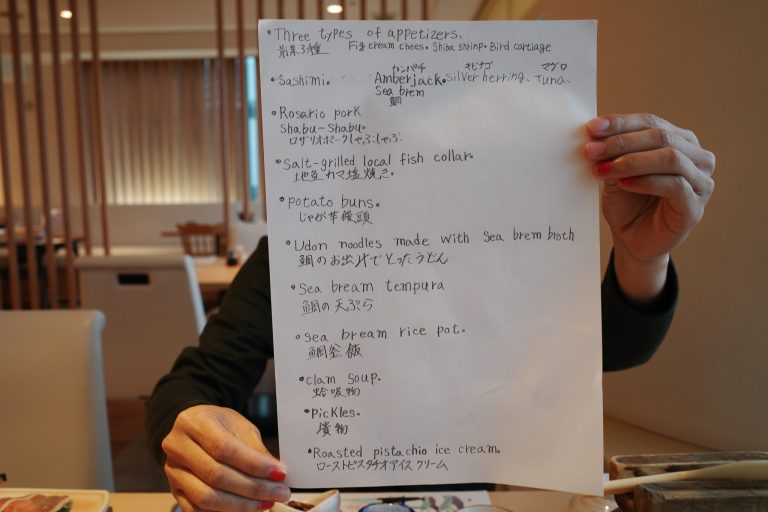 • Three types of appetizers.
前菜3種 Fig cream chees. Shiba shrinp. Bird cartiage
カンパチ キビナゴ マグロ
• Sashimi. Amberjack. silver herring. Tuna.
Sea brem
鯛
• Rosario pork
Shabu-Shabu.
ロザリオポークしゃぶしゃぶ
• Salt-grilled local fish collar.
地魚カマ塩焼き。
• potato buns.
じゃが芋饅頭
• Udon noodles made with Sea brem broth
鯛のお出汁でとったうどん
• Sea bream tempura
鯛の天ぷら
• Sea bream rice pot.
鯛釜飯
• clam soup.
蛤吸物
• Pickles.
漬物
• Roasted pistachio ice cream.
ローストピスタチオアイスクリーム